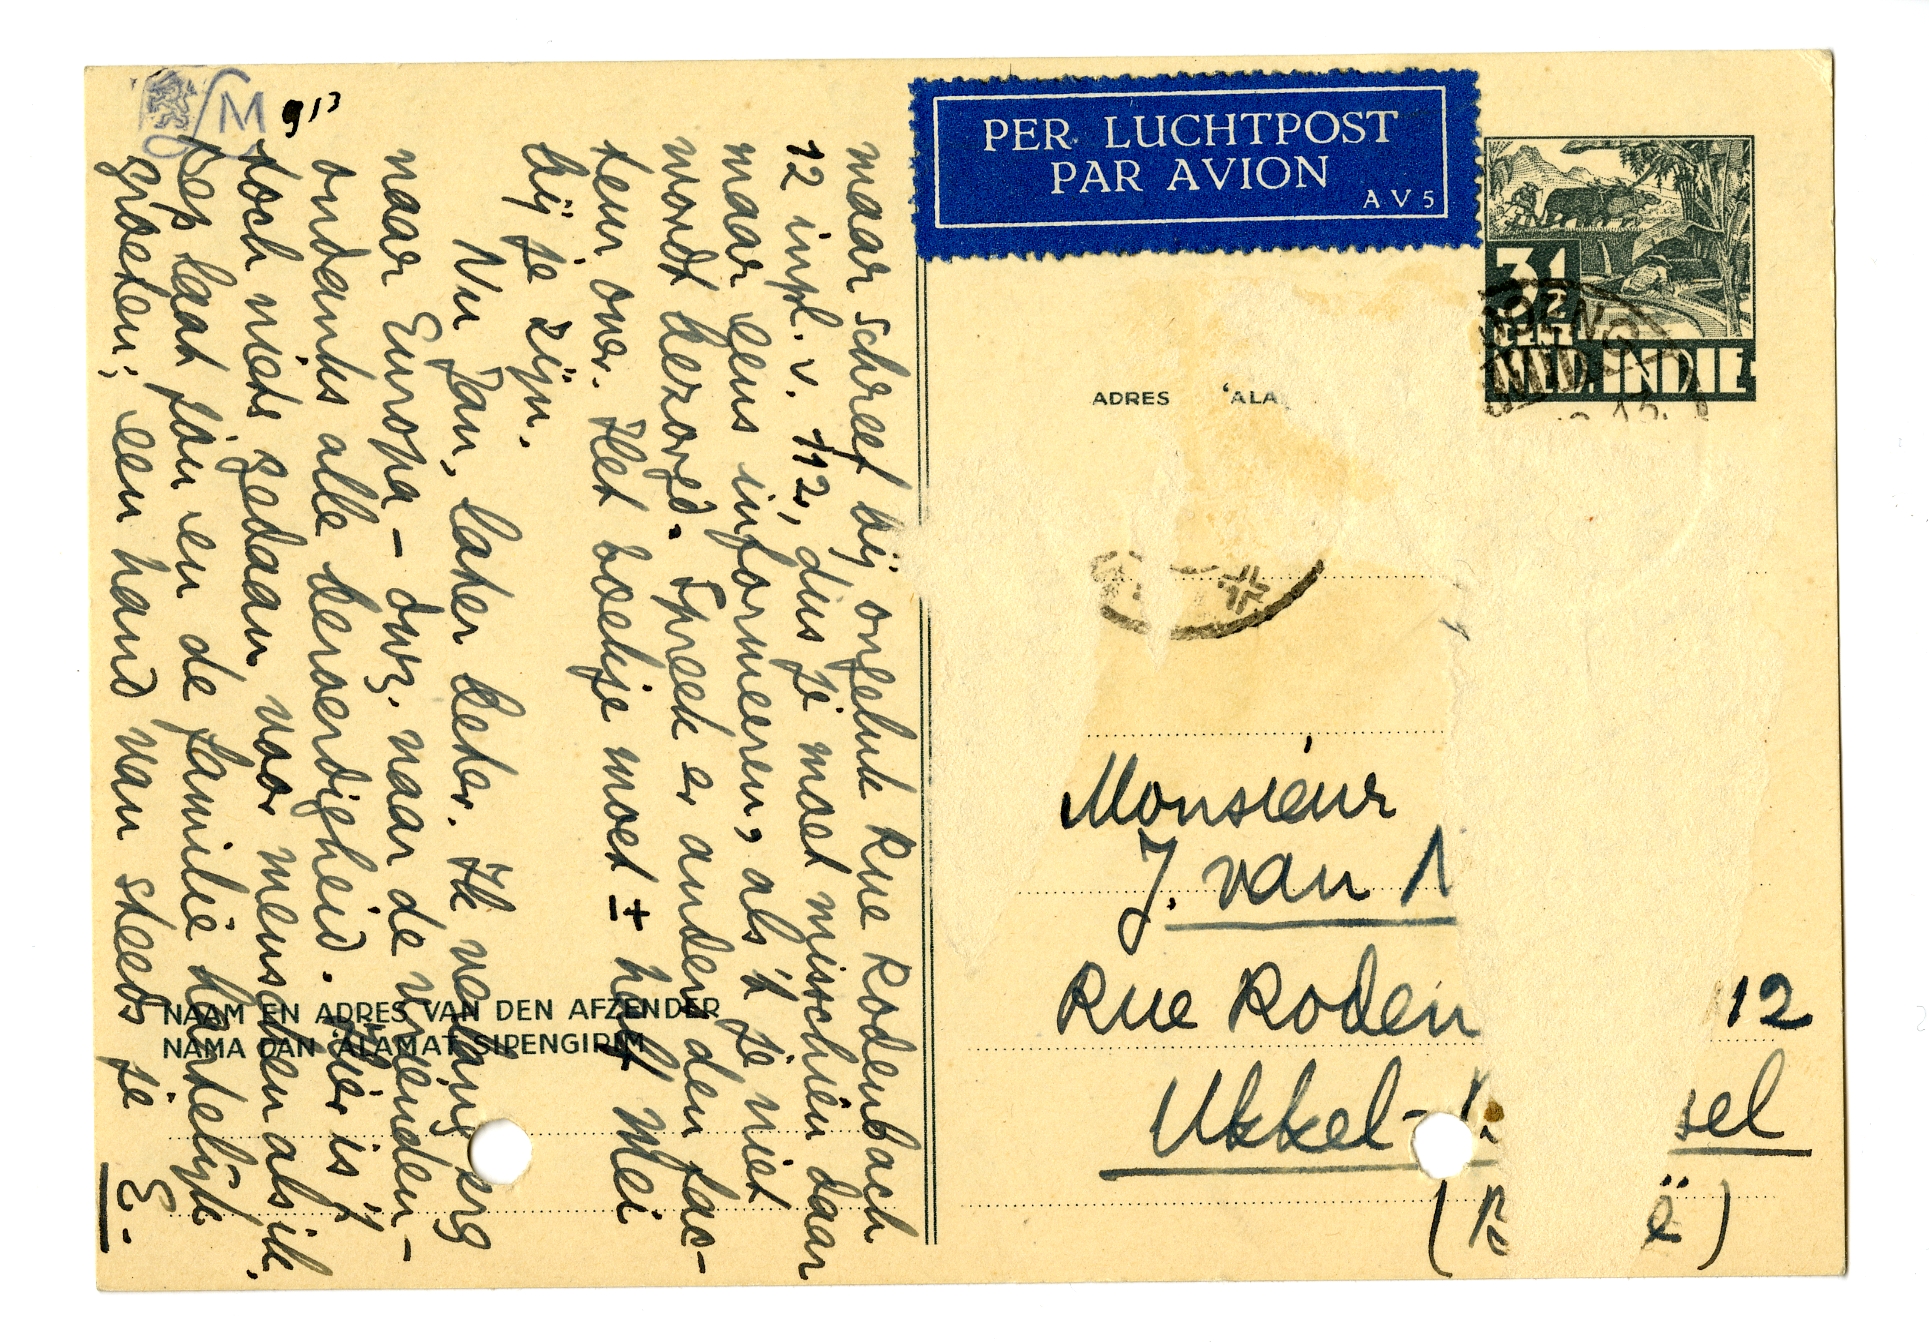 maar schreef bij ongeluk Rue Rodenbach
12 inpl. v. 112, dus je moet misschien daar
maar eens informeeren, als 't je niet
wordt bezorgd. Spreek er anders den fac-
teur over. Het boekje moet ± half Mei
bij je zijn.
Nu Jan, later beter. Ik verlang erg
naar Europa – dwz. naar de vrienden –
ondanks alle beroerdigheid. Hier is 't
toch niets gedaan voor menschen als ik.
Dep laat jou en de familie hartelijk
groeten; een hand van steeds je
E. –
LM
913
PER LUCHTPOST
PAR AVION
AV5
3½
CENT
NED. INDIE
ADRES 'ALA
Monsieur
J. van
Rue Roden 12
Ukkel- sel
( ë )
NAAM EN ADRES VAN DEN AFZENDER
NAMA DAN 'ALAMAT SIPENGIRIM